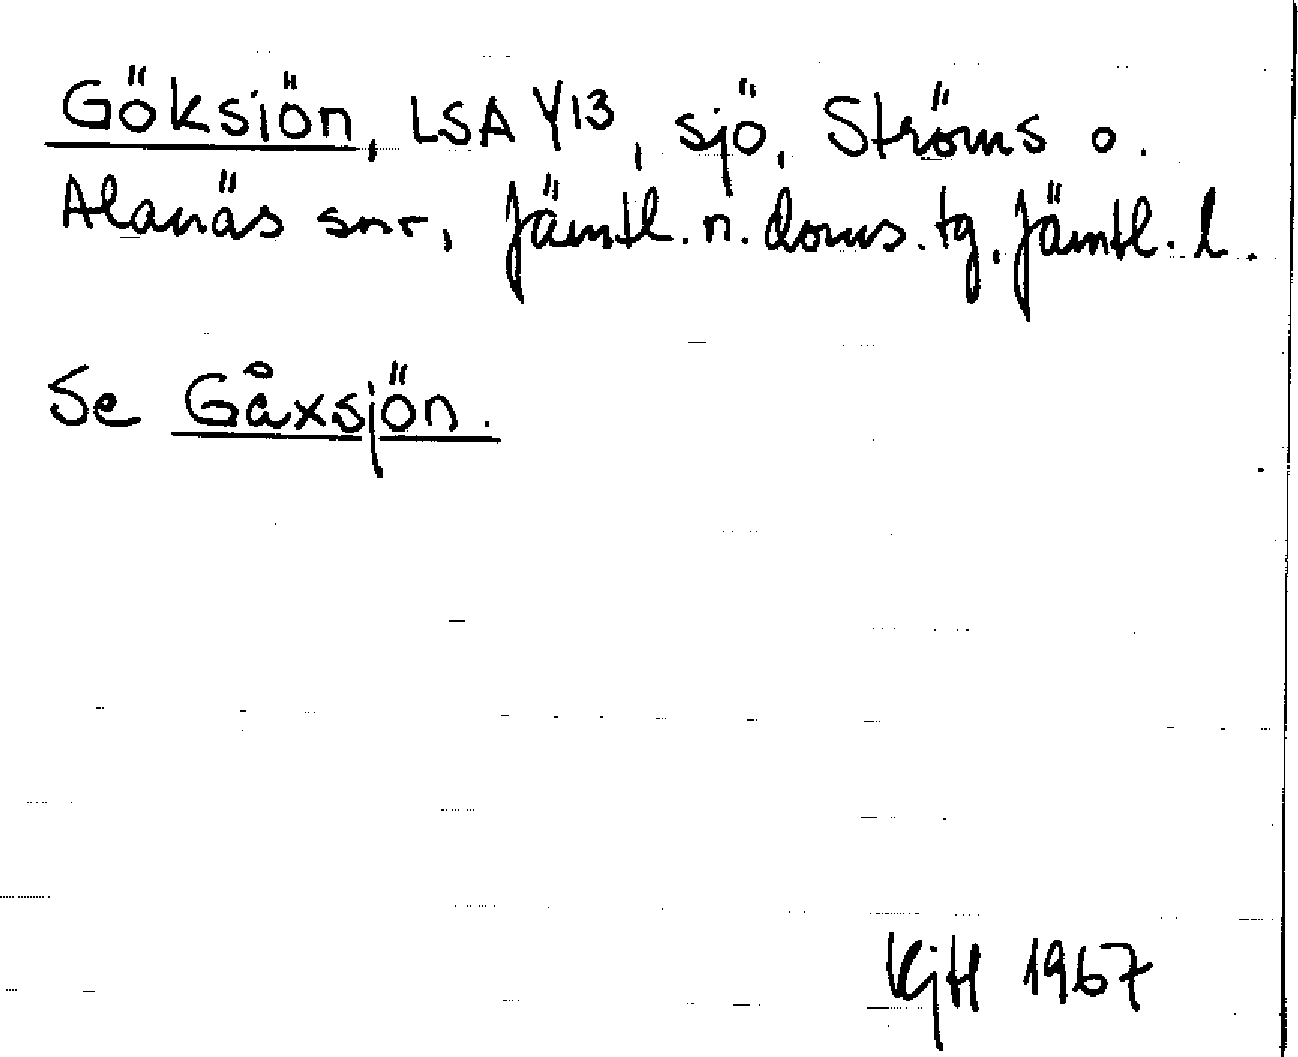 Göksiön, LSA Y13, sjö, Ströms o.
Alanäs snr, Jämtl. n. doms. tg, Jämtl. l.
Se Gåxsjön.
KjH 1967